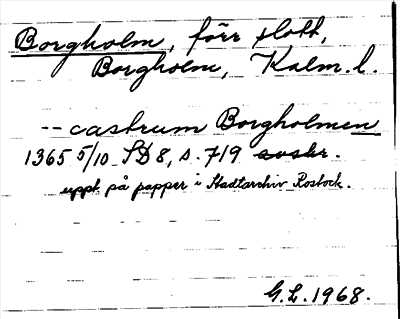 Borgholm, förr slott,
Borgholm, Kalm. l.
-- castrum Borgholmen
1365 5/10 SD 8, s. 719 avskr.
uppt på papper i Stadtarchiv Rostock.
G.L. 1968.